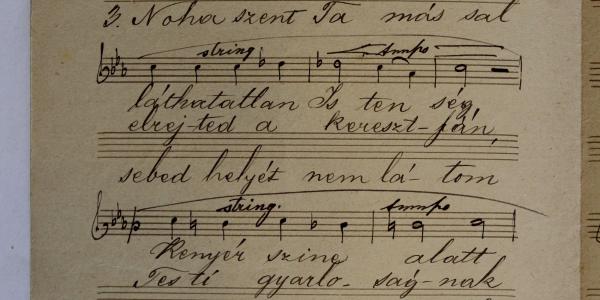 3. Noha szent Ta más sal
string tempo
láthatatlan Is ten ség,
elrej-ted a kereszt-fán,
sebed helyét nem lá- tom
string. tempo
Kenyér szine alatt
Testi gyarló- ság-nak